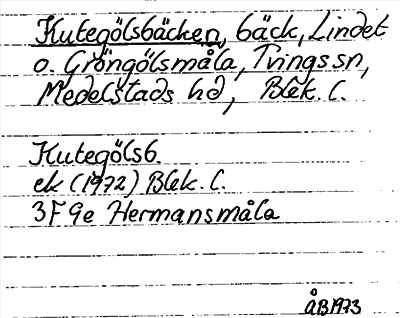 Kutegölsbäcken, bäck, Lindet
o. Gröngölsmåla, Tvings sn,
Medelstads hd, Blek. l.
Kutegölsb.
ek (1972) Blek. l.
3F 9e Hermansmåla
ÅB1973